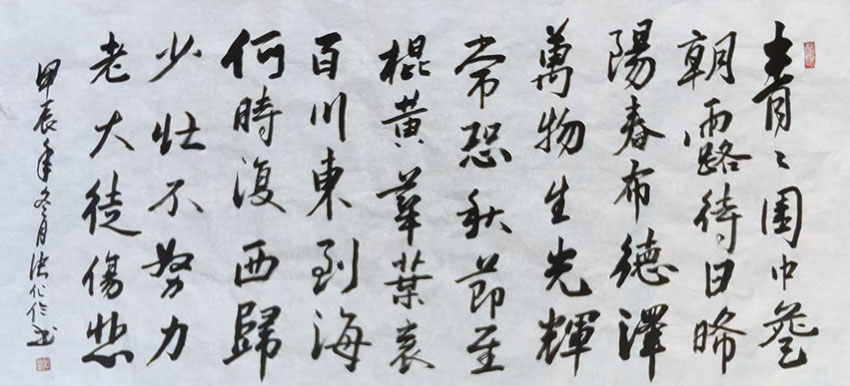 青〻園中葵
朝露待日晞
陽春布德澤
萬物生光輝
常恐秋節至
棍黄華葉衰
百川東到海
何時復西歸
少壯不努力
老大徒傷悲
甲辰年冬月书